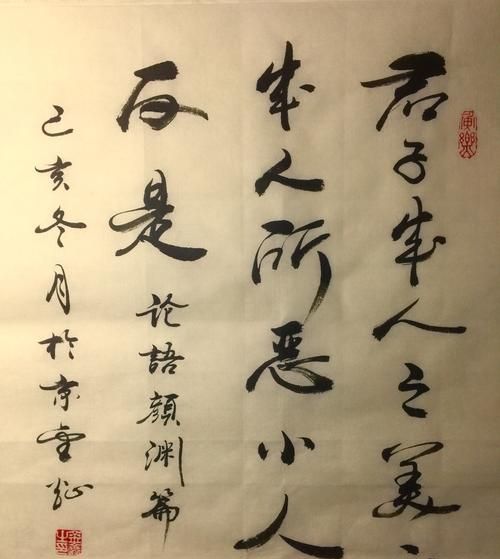 君子成人之美
成人所惡小人
反是
论語顏淵篇
己亥冬月於京